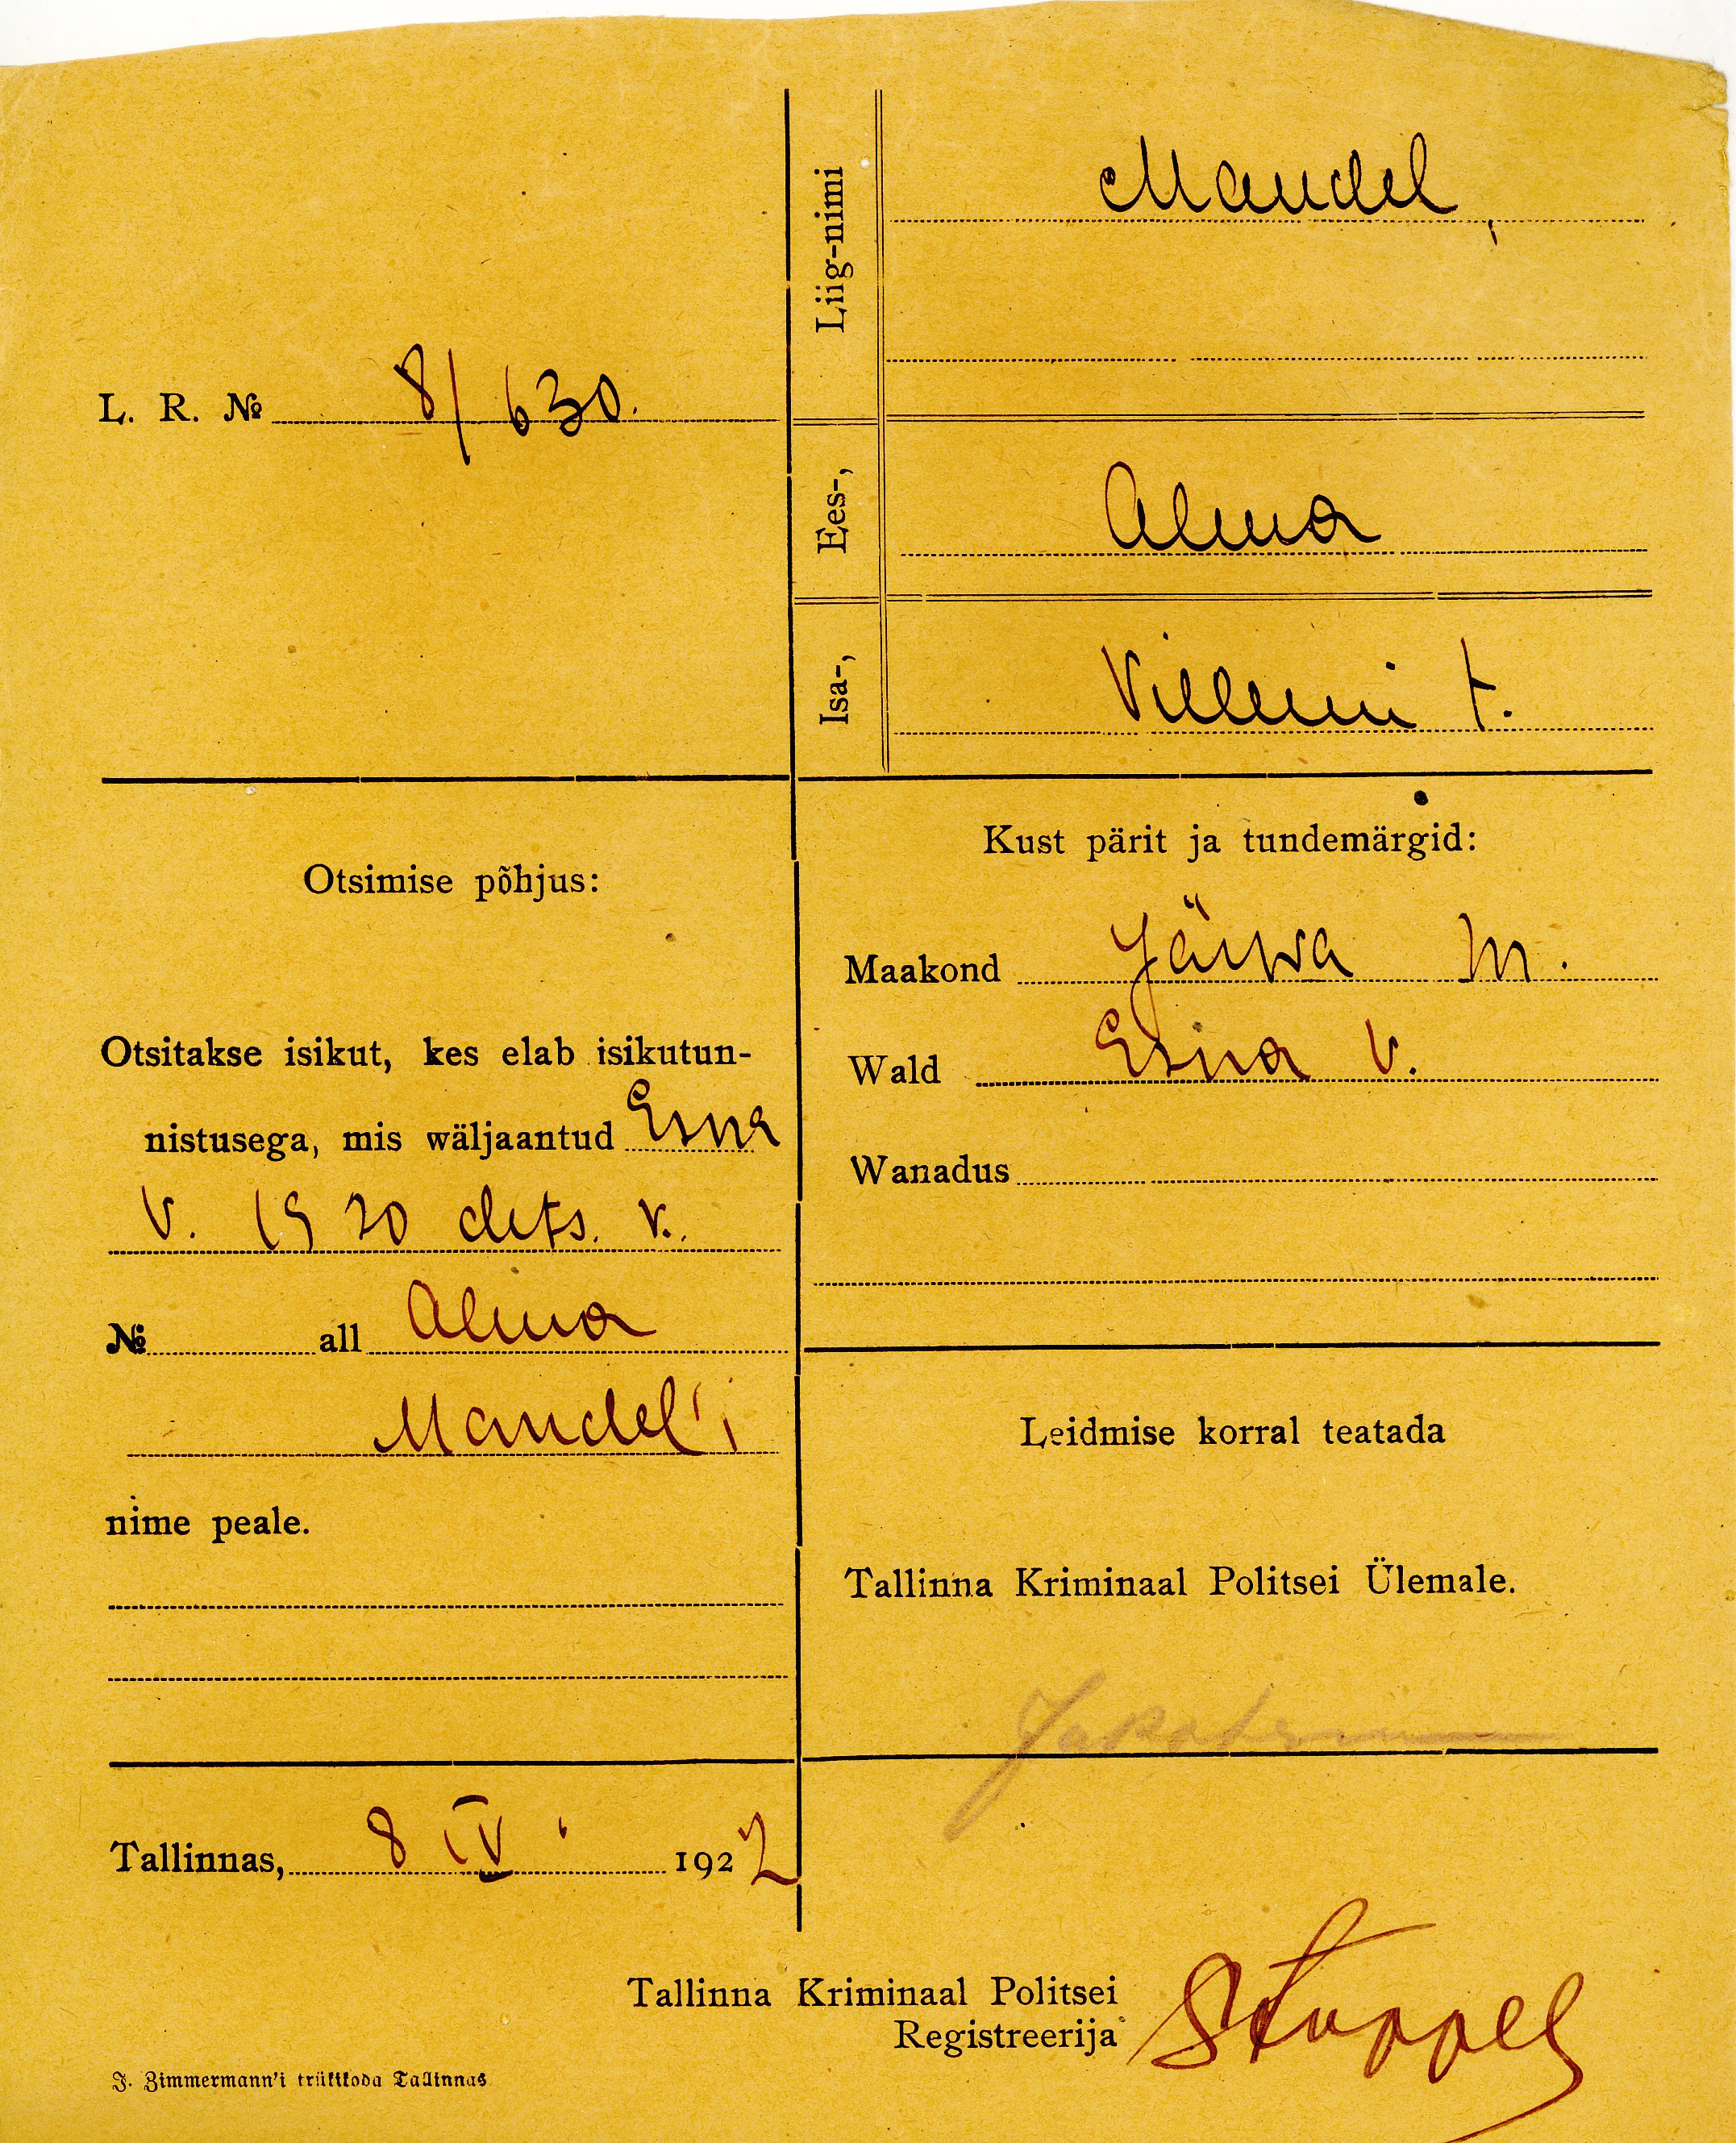 L. R. № 8/630.
Liig-nimi Mandel,
Ees-, Alma
Isa-, Villemi t.
Otsimise põhjus:
Otsitakse isikut, kes elab isikutun-
nistusega, mis wäljaantud Esna
V. 1920 dets. k.
№ all Alma
Mandel'i
nime peale.
Tallinnas, 8 IV 1922
Kust pärit ja tundemärgid:
Maakond Järwa M.
Wald Esna V.
Wanadus
Leidmise korral teatada
Tallinna Kriminaal Politsei Ülemale.
Tallinna Kriminaal Politsei
Registreerija
J. Zimmermann'i trükikoda Tallinnas